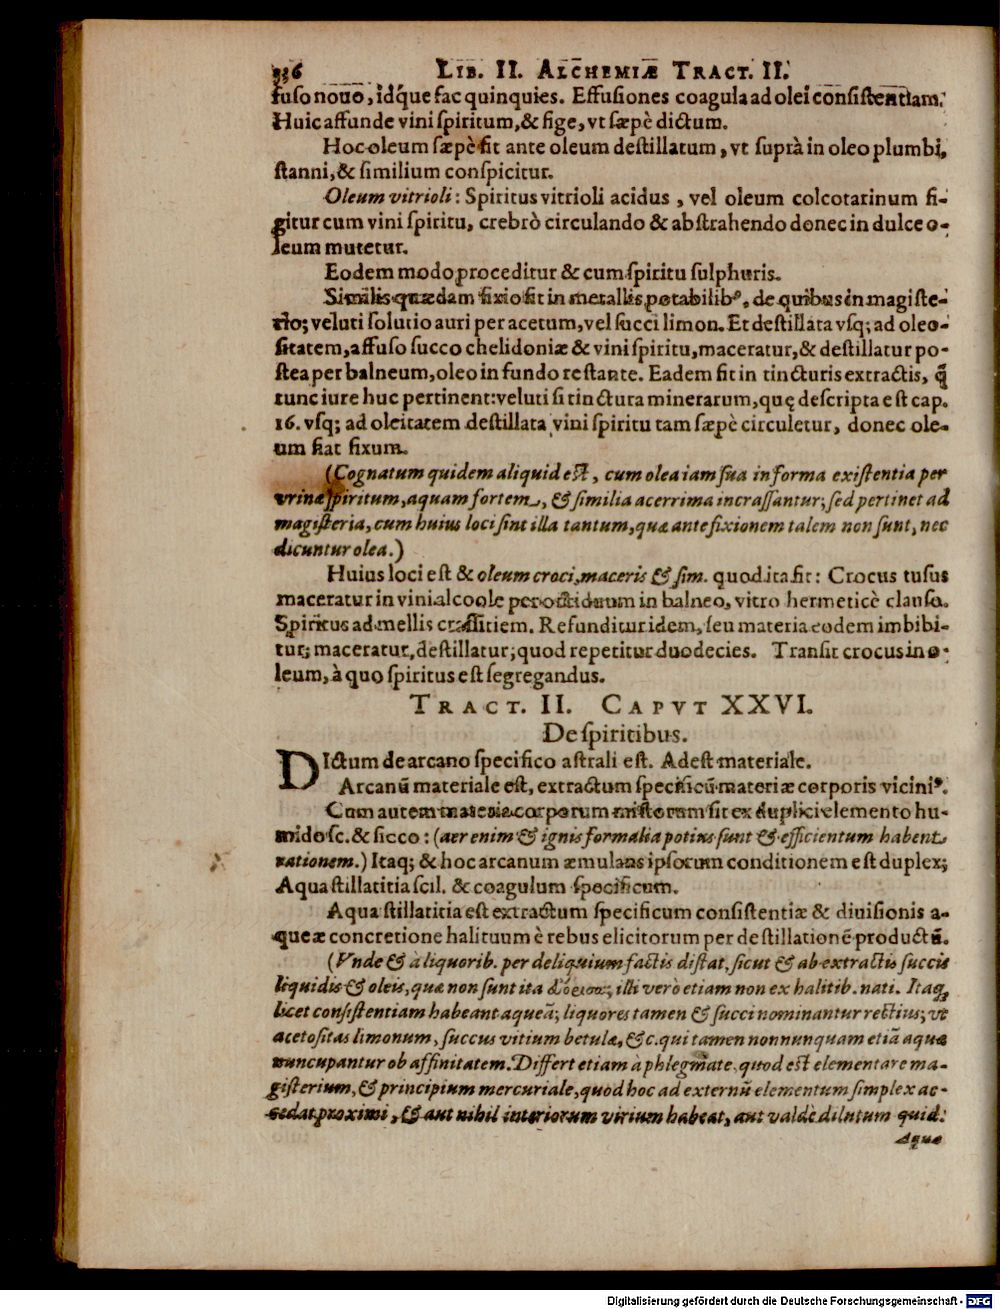 336 LIB. II. ALCHEMIÆ TRACT. II.
fuso nouo, idq́ue fac quinquies. Effusiones coagula ad olei consistentiam.
Huic affunde vini spiritum, & fige, vt sæpè dictum.
Hoc oleum sæpè fit ante oleum destillatum, vt suprà in oleo plumbi,
stanni, & similium conspicitur.
Oleum vitrioli: Spiritus vitrioli acidus, vel oleum colcotarinum fi-
gitur cum vini spiritu, crebrò circulando & abstrahendo donec in dulce o-
leum mutetur.
Eodem modo proceditur & cum spiritu sulphuris.
Similis quædam fixio fit in metallis potabilibꝰ, de quibus in magiste-
rio; veluti solutio auri per acetum, vel succi limon. Et destillata vsq; ad oleo-
sitatem, affuso succo chelidoniæ & vini spiritu, maceratur, & destillatur po-
stea per balneum, oleo in fundo restante. Eadem fit in tincturis extractis, q̃
tunc iure huc pertinent: veluti si tinctura minerarum, quę descripta est cap.
16. vsq; ad oleitatem destillata vini spiritu tam sæpè circuletur, donec ole-
um fiat fixum.
(Cognatum quidem aliquid est, cum olea iam sua in forma existentia per
vrinæ spiritum, aquam fortem, & similia acerrima incrassantur; sed pertinet ad
magisteria, cum huius loci sint illa tantum, quæ ante fixionem talem non sunt, nec
dicuntur olea.)
Huius loci est & oleum croci, maceris & sim. quod ita fit: Crocus tusus
maceratur in vini alcoole per octiduum in balneo, vitro hermeticè clauso.
Spiritus ad mellis crassitiem. Refunditur idem, seu materia eodem imbibi-
tur; maceratur, destillatur; quod repetitur duodecies. Transit crocus in o-
leum, à quo spiritus est segregandus.
TRACT. II. CAPVT XXVI.
De spiritibus.
DIctum de arcano specifico astrali est. Adest materiale.
Arcanũ materiale est, extractum specificũ materiæ corporis viciniꝰ.
Cum autem materia corporum mistorum sit ex duplici elemento hu-
mido sc. & sicco: (aer enim & ignis formalia potius sunt & efficientum habent
rationem.) Itaq; & hoc arcanum æmulans ipsorum conditionem est duplex;
Aqua stillatitia scil. & coagulum specificum.
Aqua stillatitia est extractum specificum consistentiæ & diuisionis a-
queæ concretione halituum è rebus elicitorum per destillationẽ productũ.
(Vnde & à liquorib. per deliquium factis distat, sicut & ab extractis succis
liquidis & oleis, quæ non sunt ita illi vero etiam non ex halitib. nati. Itaq,
licet consistentiam habeant aqueã; liquores tamen & succi nominantur rectius; vt
acetositas limonum, succus vitium betulæ, &c. qui tamen nonnunquam etiã aquæ
nuncupantur ob affinitatem. Differt etiam à phlegmate, quod est elementare ma-
gisterium, & principium mercuriale, quod hoc ad externũ elementum simplex ac-
cedat proximi, & aut nihil interiorum virium habeat, aut valdè dilutum quid.
Aquæ
Digitalisierung gefördert durch die Deutsche Forschungsgemeinschaft - DFG